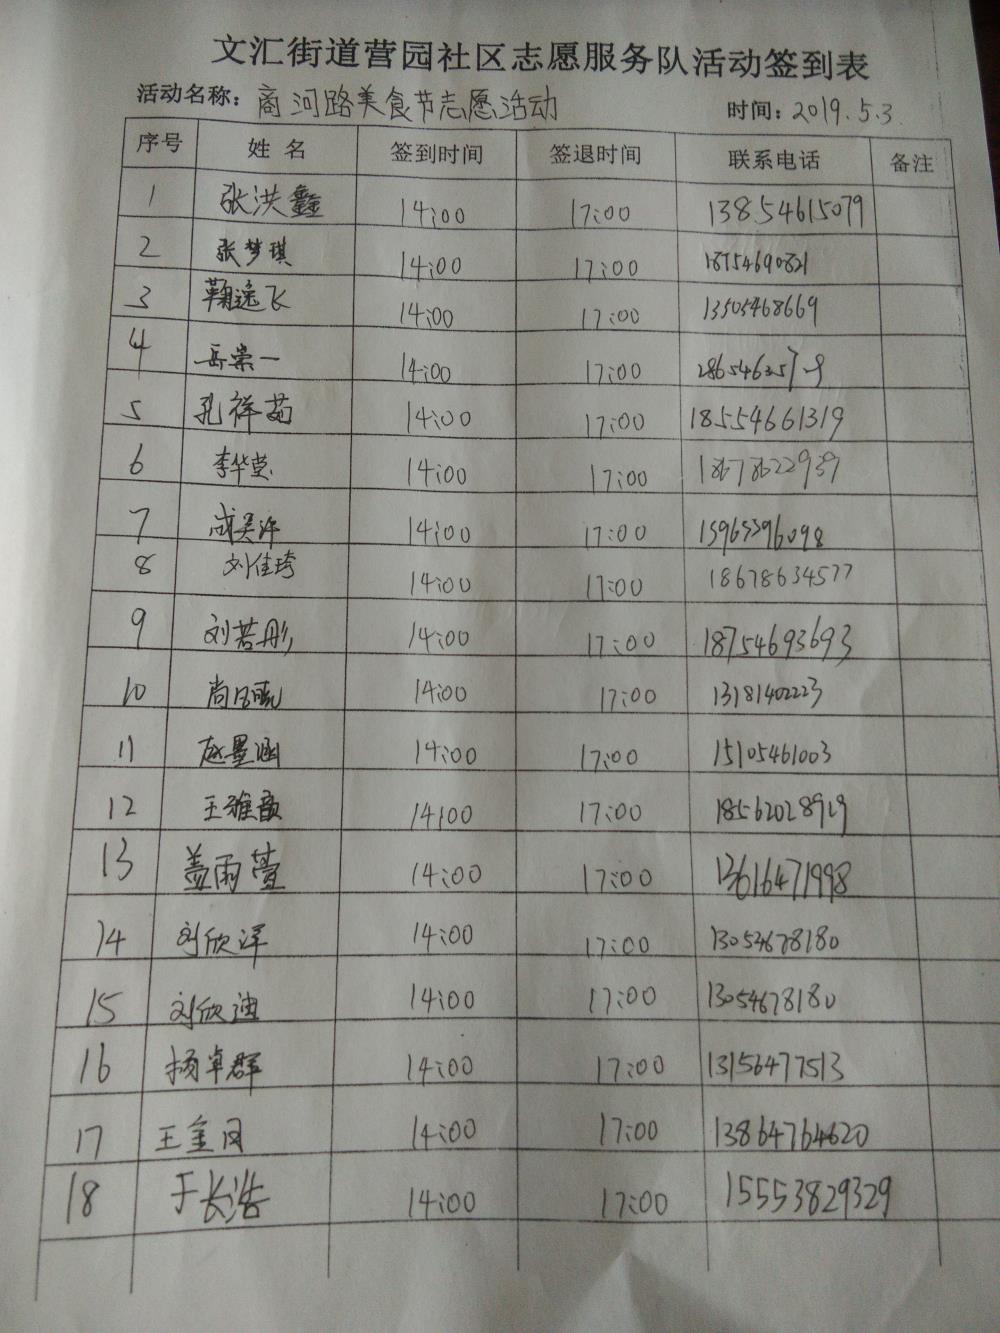 文汇街道营园社区志愿服务队活动签到表
活动名称：商河路美食节志愿活动 时间：2019.5.3
序号 姓名 签到时间 签退时间 联系电话 备注
1 张洪鑫 14:00 17:00 13854615079
2 张梦琪 14:00 17:00 18754690821
3 鞠逸飞 14:00 17:00 13505468669
4 岳崇一 14:00 17:00
5 孔祥茹 14:00 17:00 18554661319
6 李华莹 14:00 17:00 18678622939
7 成昊泽 14:00 17:00 15965396098
8 刘佳琦 14:00 17:00 18678634577
9 刘若彤 14:00 17:00 18754693693
10 14:00 17:00 13181402223
11 赵墨涵 14:00 17:00 15105461003
12 王雅韵 14:00 17:00 18562028929
13 盖雨萱 14:00 17:00 13616471998
14 刘欣洋 14:00 17:00 13054678180
15 刘欣迪 14:00 17:00 13054678180
16 杨卓群 14:00 17:00 13156477513
17 王金凤 14:00 17:00 13864764620
18 于长浩 14:00 17:00 15553829329